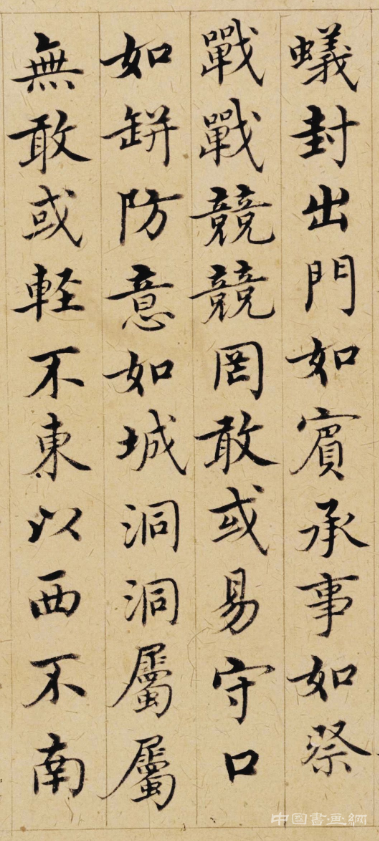 蟻封出門如賓承事如祭
戰戰競競罔敢或易守口
如缾防意如城洞洞屬屬
無敢或軽不東以西不南
中国書画網